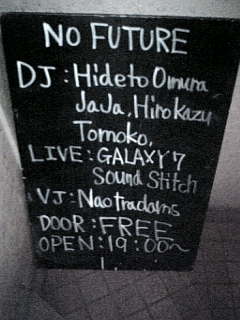 NO FUTURE
DJ:Hideto Omura
JaJa,Hirokazu
Tomoko,
LIVE:GALAXY7
Sound Stitch
VJ:Naotradams
DOOR:FREE
OPEN:19:00~